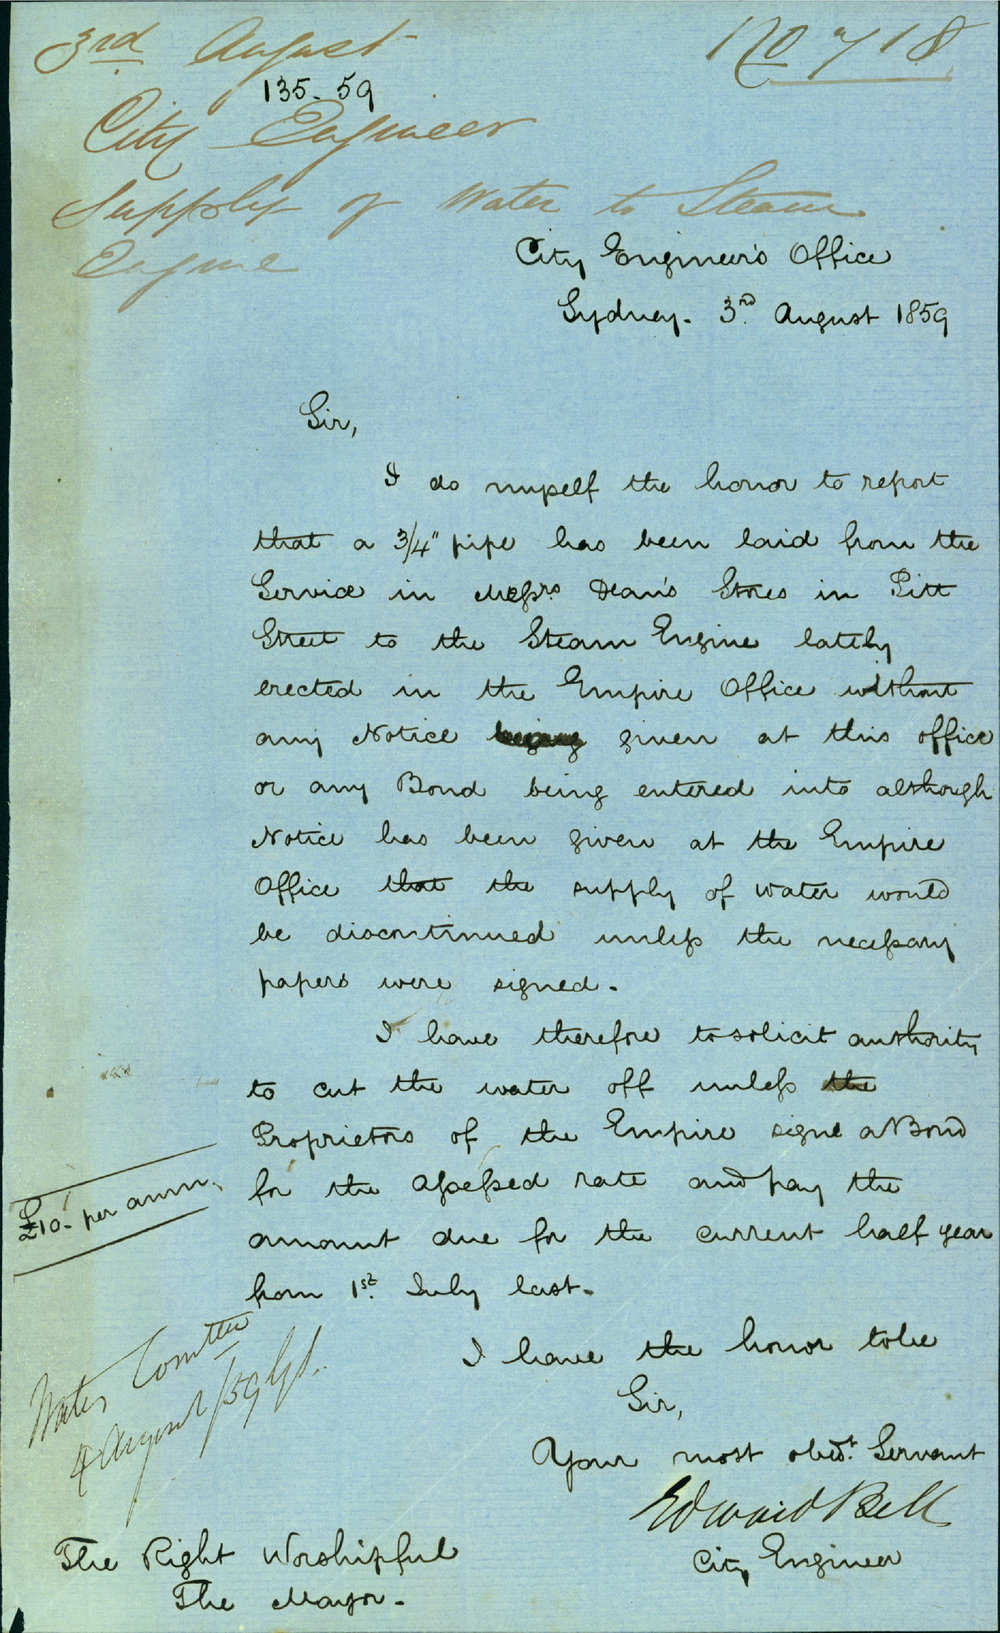 3rd August
No 718
135. 59
City Engineer
Supply of Water to Steam
Engine
City Engineer's Office
Sydney. 3rd. August 1859
Sir,
I do myself the honor to report
that a 3/4" pipe has been laid from the
Service in Messrs Dean's Stores in Pitt
Street to the Steam Engine lately
erected in the Empire Office without
any Notice given at this office
or any Bond being entered into although
Notice has been given at the Empire
Office that the supply of water would
be discontinued unless the necessary
papers were signed.
I have therefore to solicit authority
to cut the water off unless the
Proprietors of the Empire sign a Bond
for the assessed rate and pay the
£10.- per annm.
amount due for the current half year
from 1st. July last.
I have the honor to be
Sir,
Your most obedt. Servant
Edward Bell
City Engineer
Water Comttee
4 August /59
The Right Worshipful
The Mayor.